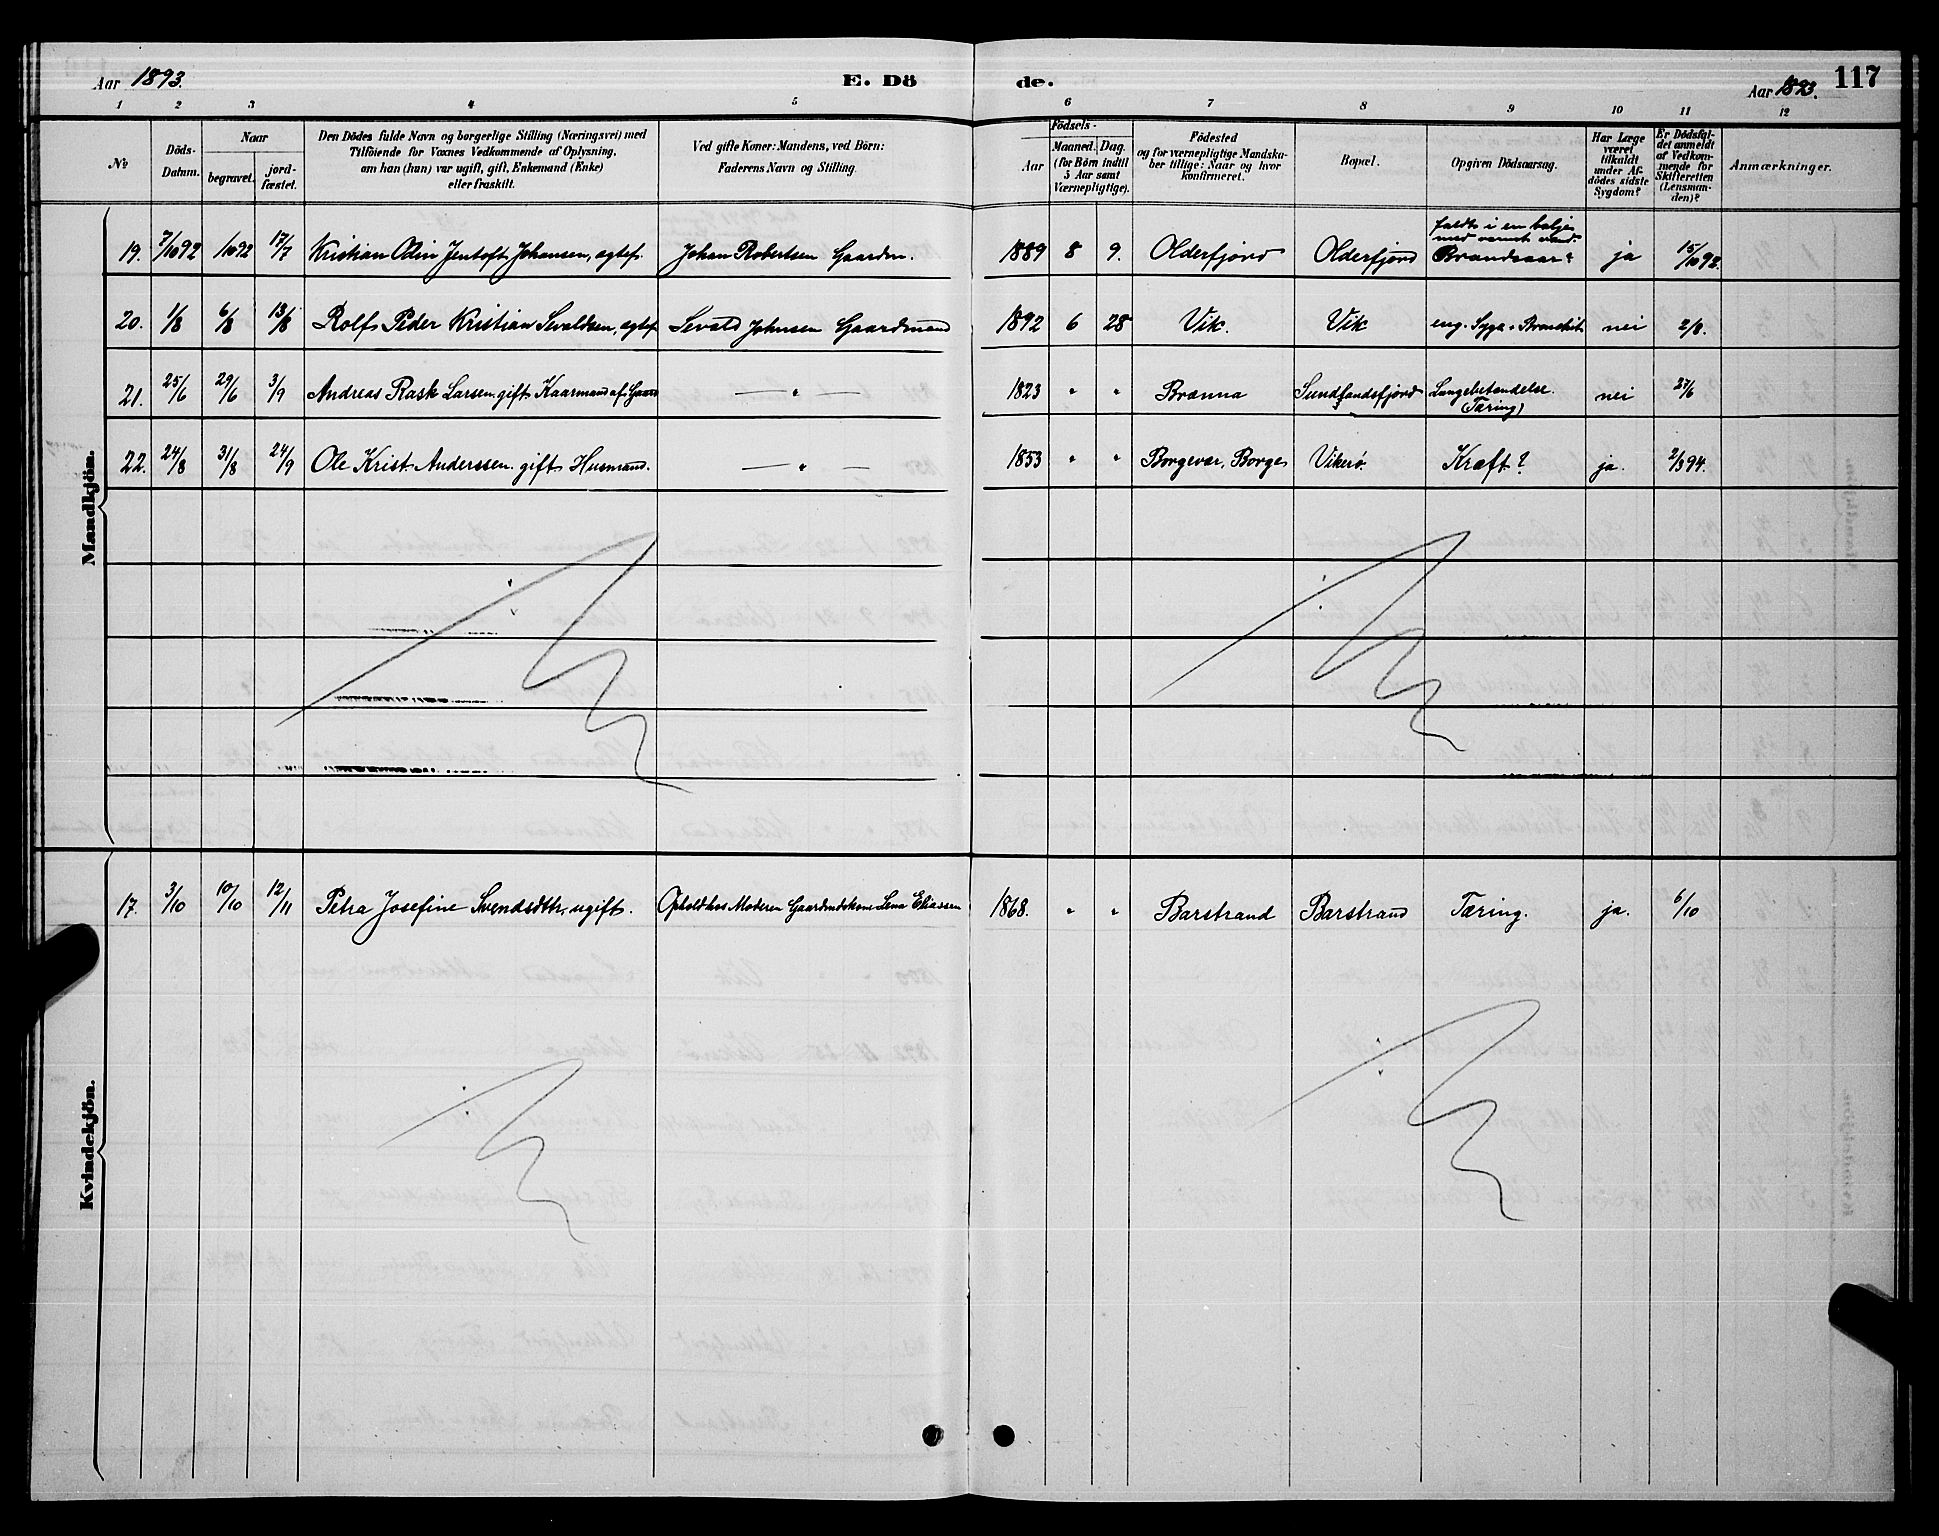 Aar 1893.
E. Dö
de.
Aar 1893.
117
1 2 3 4 5 6 7 8 9 10 11 12
No
Döds-
Datum.
Naar
begravet.
jord-
fæstet.
Den Dödes fulde Navn og borgerlige Stilling (Næringsvei) med
Tilföiende for Voxnes Vedkommende af Oplysning,
om han (hun) var ugift, gift, Enkemand (Enke)
eller fraskilt.
Ved gifte Koner: Mandens, ved Börn:
Faderens Navn og Stilling.
Födsels-
Aar
Maaned. Dag.
(for Börn indtil
5 Aar samt
Værnepligtige).
Födested
og for værnepligtige Mandska-
ber tillige: Naar og hvor
konfirmeret.
Bopæl.
Opgiven Dödsaarsag.
Har Læge
været
tilkaldt
under Af-
dödes sidste
Sygdom?
Er Dödsfal-
det anmeldt
af Vedkom-
mende for
Skifteretten
(Lensman-
den)?
Anmærkninger.
Mandkjön.
faldt i en balje
med varmt vand.
19. 7/10 92 /10 92 17/7 Kristian Odin Jentoft Johansen, ægtef. Johan Robertsen Gaardm. 1889 8 9. Olderfjord Olderfjord Brandsaar ja 15/10 92.
20. 1/8 6/8 13/8 Rolf Peder Kristian Sevaldsen, ægtef Sevald Johnsen Gaardmand 1892 6 28 Vik. Vik eng. Syge. Bronchit nei 2/8.
21. 25/6 29/6 3/9 Andreas Rask Larsen gift Kaarmand af Gaard — " — 1823 " " Brænna Sundsandsfjord Lungebetændelse. nei 27/6
(Tæring)
22. 24/8 31/8 24/9 Ole Krist. Anderssen. gift Husmand. — " — 1853 " " Borgevær, Borge Vikerö. Kræft? ja. 2/3 94.
Kvindekjön.
17. 3/10 10/10 12/11 Petra Josefine Svendsdtr, ugift. Ophold hos Moderen Gaardmdskone Lena Eliassen 1868. " " Barstrand Barstrand Tæring. ja. 6/10